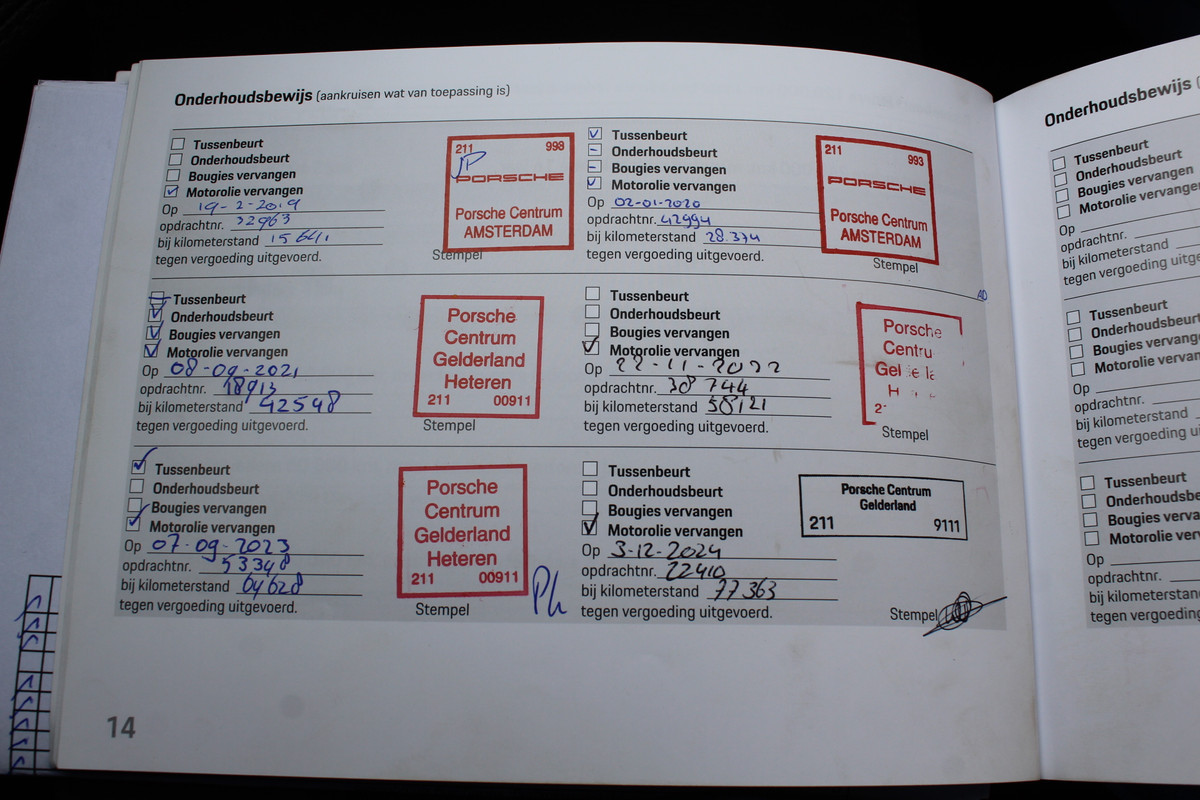 Onderhoudsbewijs (aankruisen wat van toepassing is)
Tussenbeurt
Onderhoudsbeurt
Bougies vervangen
Motorolie vervangen
Op 19-2-2019
opdrachtnr. 32963
bij kilometerstand 15641
tegen vergoeding uitgevoerd.
211 993
PORSCHE
Porsche Centrum
AMSTERDAM
Stempel
Tussenbeurt
Onderhoudsbeurt
Bougies vervangen
Motorolie vervangen
Op 02-01-2020
opdrachtnr. 42994
bij kilometerstand 28.374
tegen vergoeding uitgevoerd.
211 993
PORSCHE
Porsche Centrum
AMSTERDAM
Stempel
Tussenbeurt
Onderhoudsbeurt
Bougies vervangen
Motorolie vervangen
Op 08-09-2021
opdrachtnr. 18913
bij kilometerstand 42548
tegen vergoeding uitgevoerd.
Porsche
Centrum
Gelderland
Heteren
211 00911
Stempel
Tussenbeurt
Onderhoudsbeurt
Bougies vervangen
Motorolie vervangen
Op 22-11-2022
opdrachtnr. 38744
bij kilometerstand 58121
tegen vergoeding uitgevoerd.
Porsche
Stempel
Tussenbeurt
Onderhoudsbeurt
Bougies vervangen
Motorolie vervangen
Op 07-09-2023
opdrachtnr. 53348
bij kilometerstand 64628
tegen vergoeding uitgevoerd.
Porsche
Centrum
Gelderland
Heteren
211 00911
Stempel
Tussenbeurt
Onderhoudsbeurt
Bougies vervangen
Motorolie vervangen
Op 3-12-2024
opdrachtnr. 22410
bij kilometerstand 77363
tegen vergoeding uitgevoerd.
Porsche Centrum
Gelderland
211 9111
Stempel
14
Onderhoudsbewijs
Tussenbeurt
Onderhoudsbeurt
Bougies vervangen
Motorolie vervangen
Op
opdrachtnr.
bij kilometerstand
tegen vergoeding
Tussenbeurt
Onderhoudsbeurt
Bougies vervangen
Motorolie
Op
opdrachtnr.
bij kilometerstand
tegen vergoeding
Tussenbeurt
Bougies
Motorolie
Op
opdrachtnr.
tegen vergoeding